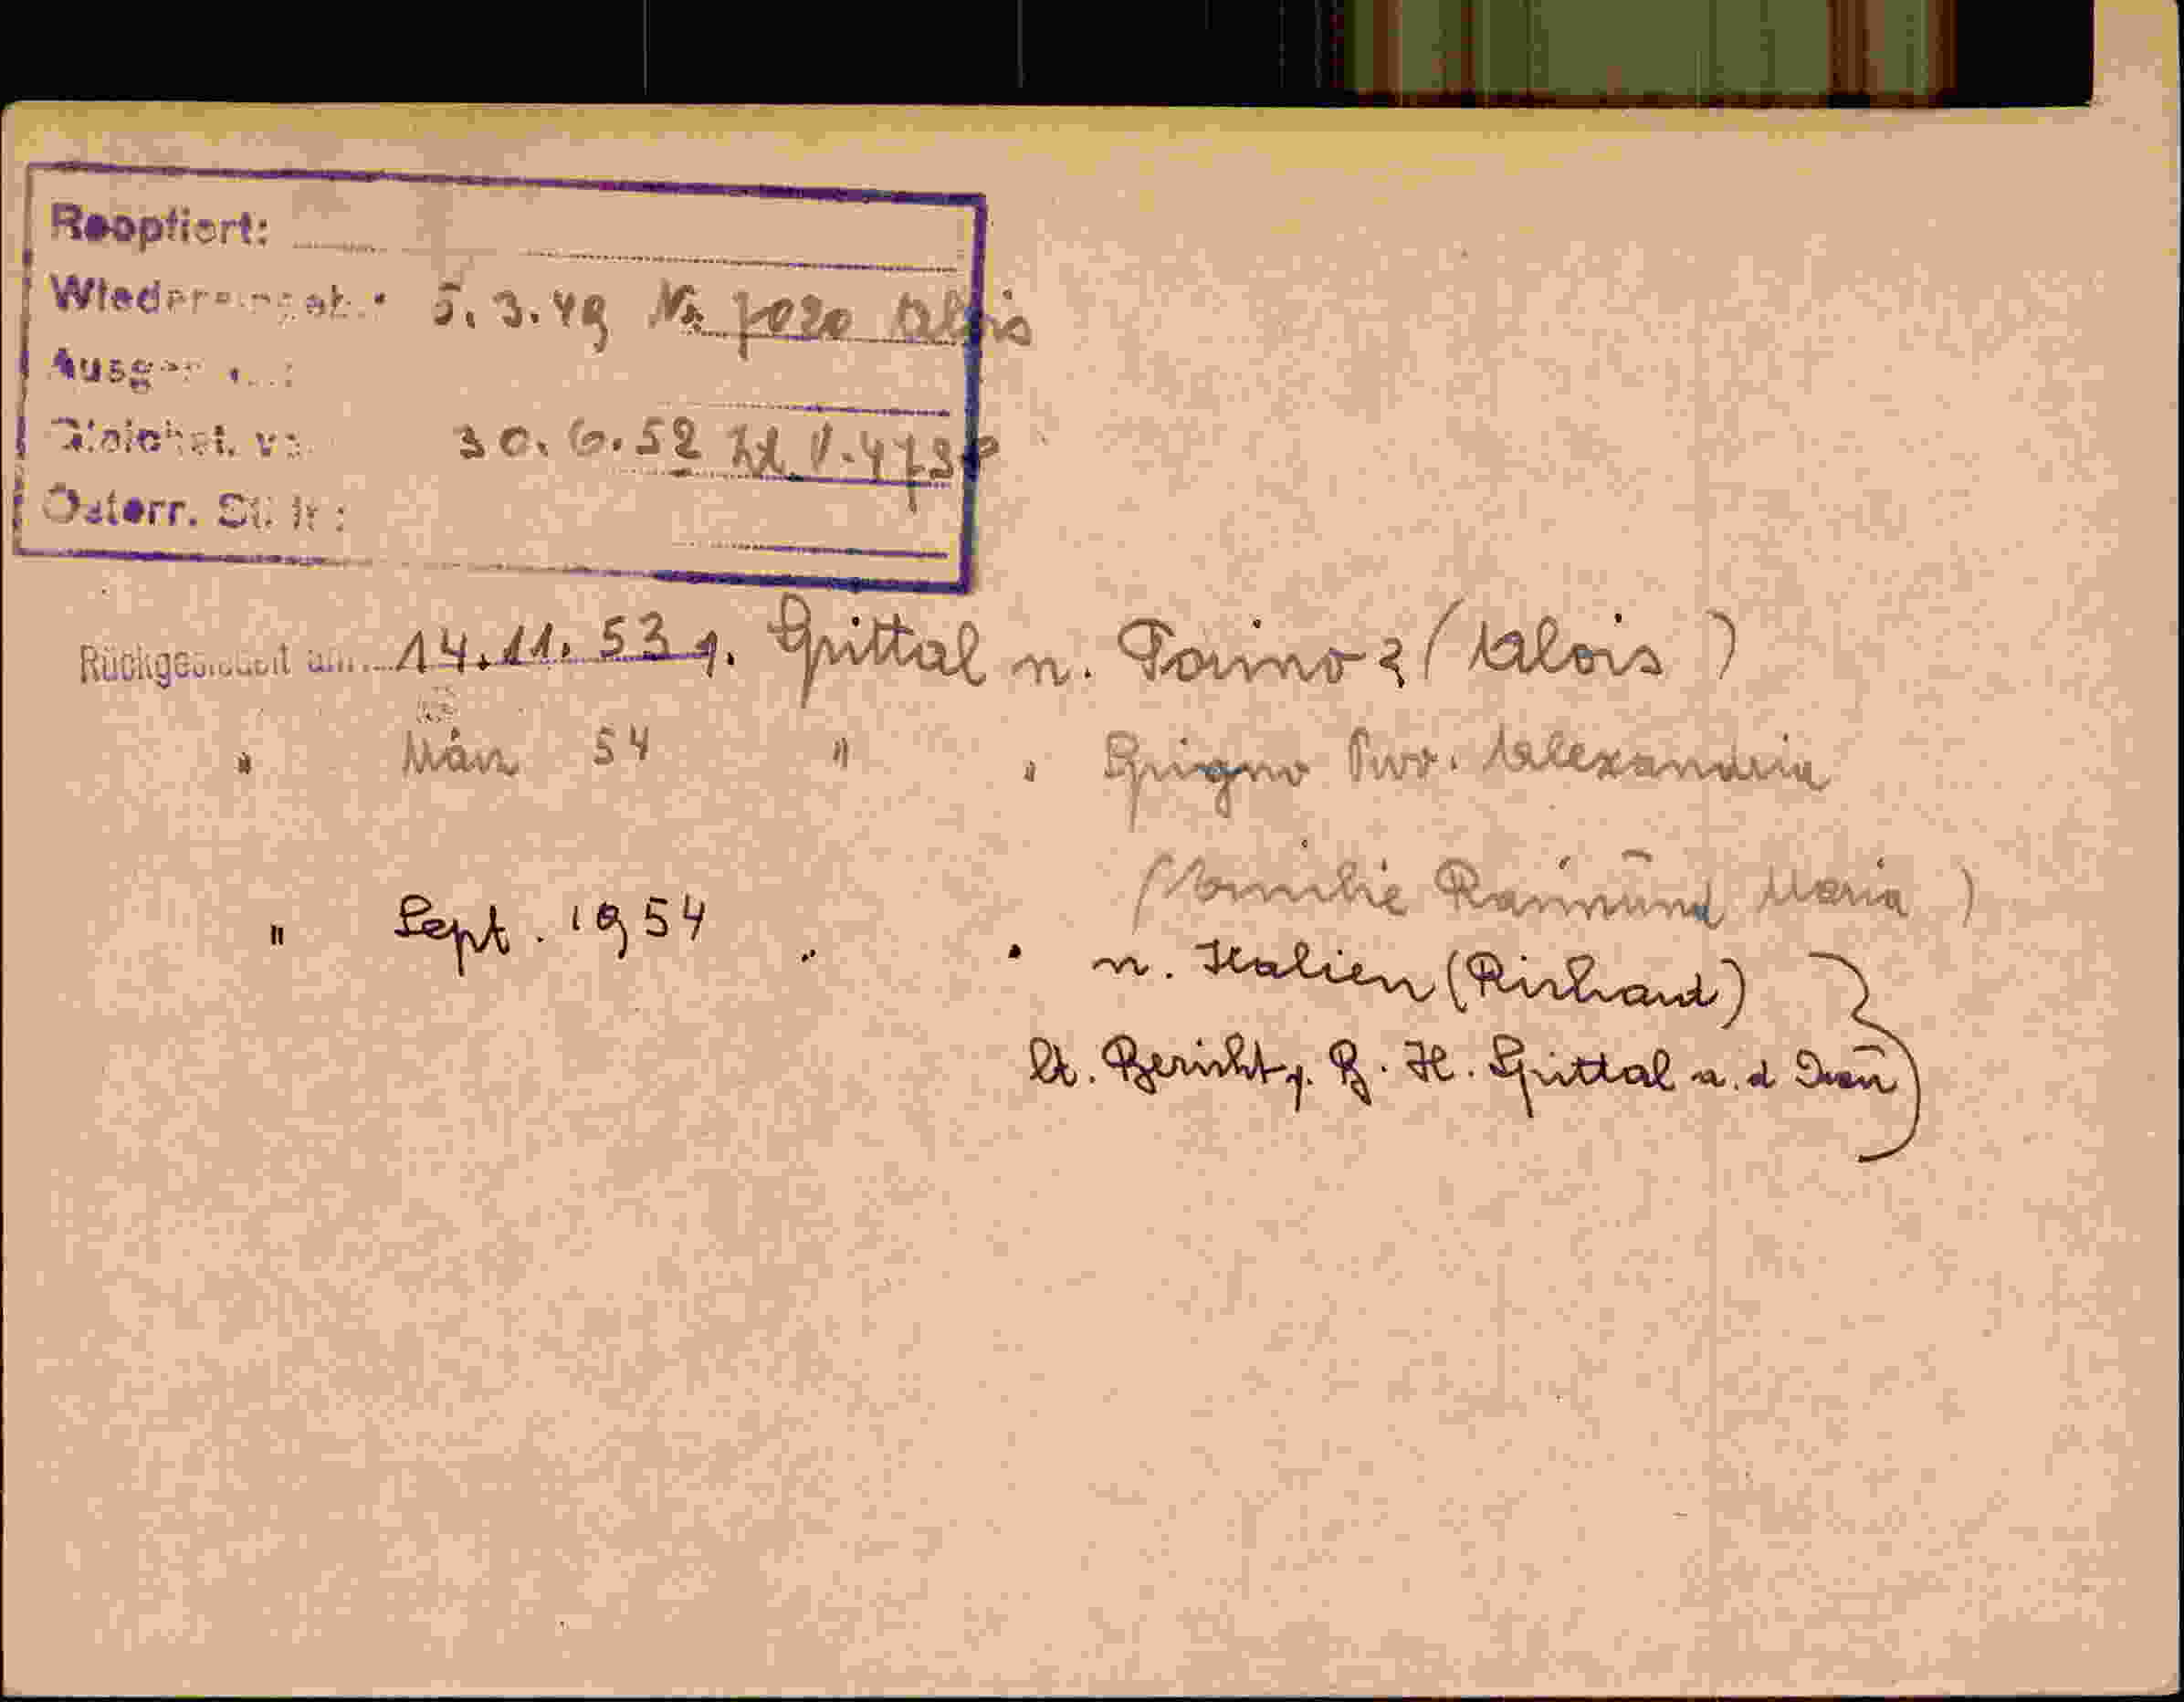 Reoptiert:
Wiedereingeb.: 5.3.49 Nr. 7020 Alois
Ausgew...:
Gleichst. v. 30.6.52 Zl. V-473
Österr. St. :
Rückgesiedelt am 14.11.53 v. Spittal n. Torino (Alois)
" März 54 " " Spigno Prov. Alexandria
(Emilie Raimund Maria)
" Sept. 1954 " " n. Italien (Richard)
lt. Bericht v. B. H. Spittal a. d Drau